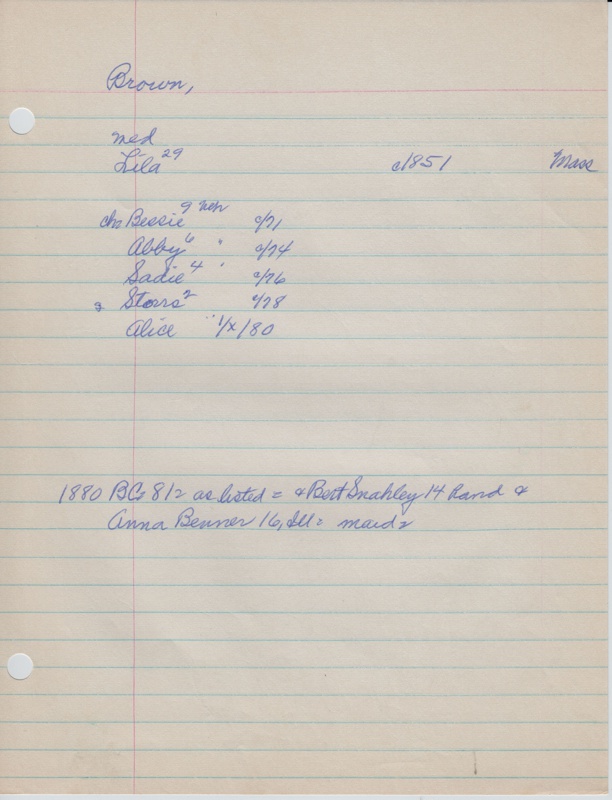 Brown,
med
Lila 29 c1851 Mass
chs Bessie 9 Neh c/71
Abby 6 " c/74
Sadie 4 " c/76
Storrs 2 c/78
Alice 1/x/80
1880 BC 812 as listed = & Bert 14 &
Anna Benner 16, Ill = maid